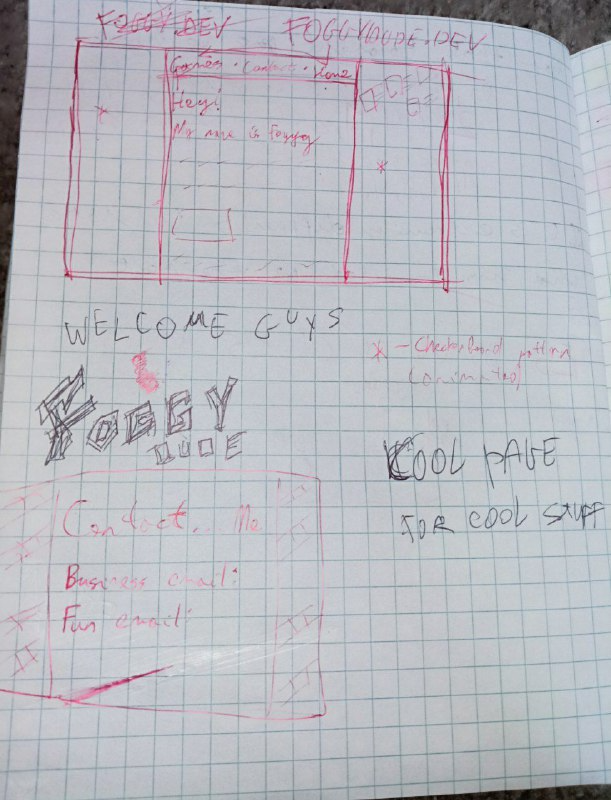 FOGGY.DEV FOGGYDUDE.DEV
Games • Contact • Home
Hey!
My name is Foggy
WELCOME GUYS
* - Checkerboard pattern
(animated)
FOGGY
DUDE
COOL PAGE
FOR COOL STUFF
Contact.. Me
Business email:
Fun email: